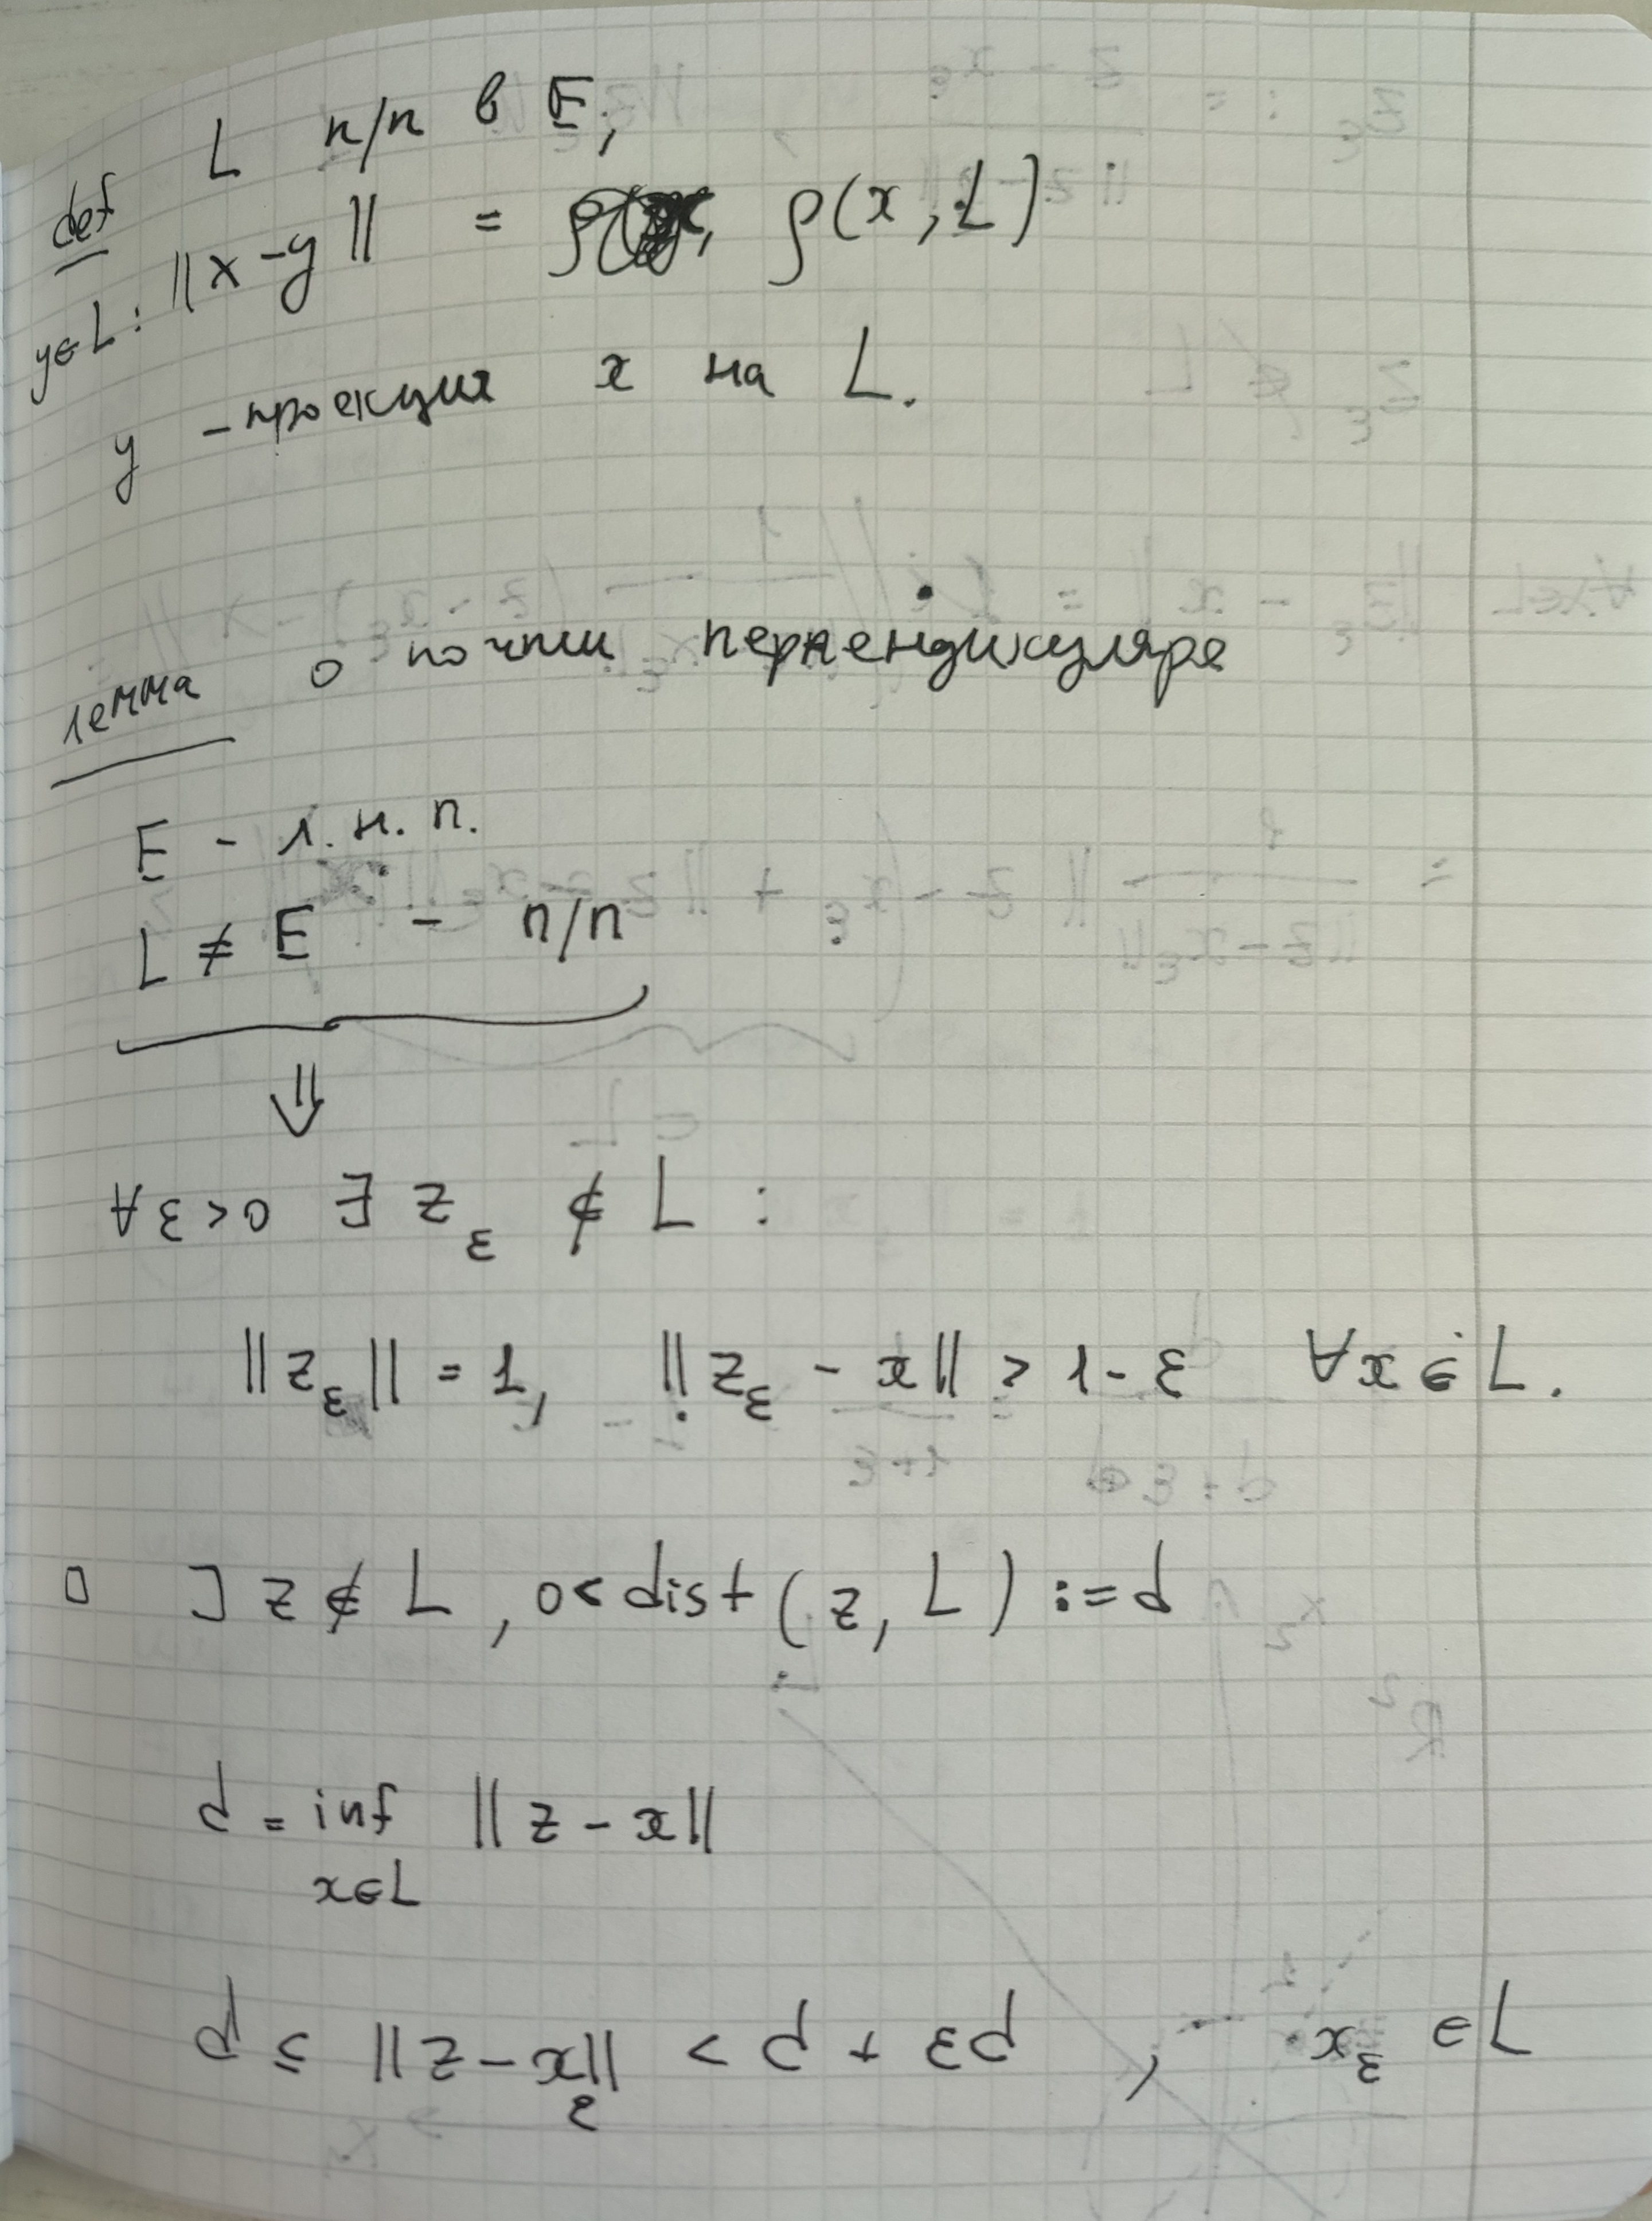 def L п/п в E,
y∈L: ||x-y|| = ρ(x, L)
y - проекция x на L.
лемма о почти перпендикуляре
E - л.н.п.
L ≠ E - п/п
⇓
∀ε>0 ∃ z_ε ∉ L :
||z_ε|| = 1, ||z_ε - x|| > 1-ε ∀x∈L.
□ ] z ∉ L, 0< dist (z, L) := d
d = inf ||z-x||
x∈L
d ≤ ||z-x_ε|| < d + εd , x_ε ∈ L